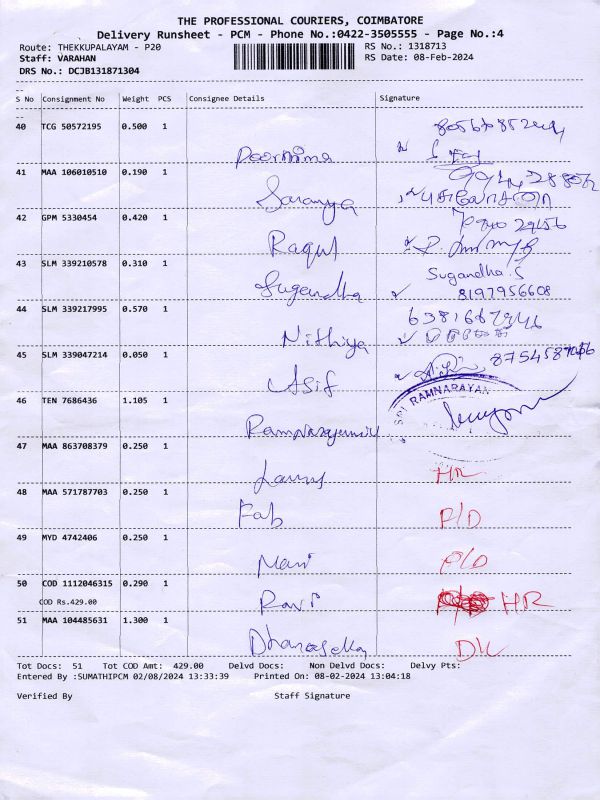 THE PROFESSIONAL COURIERS, COIMBATORE
Delivery Runsheet - PCM - Phone No.:0422-3505555 - Page No.:4
Route: THEKKUPALAYAM - P20
RS No.: 1318713
Staff: VARAHAN
RS Date: 08-Feb-2024
DRS No.: DCJB131871304
S No Consignment No Weight PCS Consignee Details Signature
40 TCG 50572195 0.500 1 Poornima
41 MAA 106010510 0.190 1 Saranya
42 GPM 5330454 0.420 1 Ragul
43 SLM 339210578 0.310 1 Sugandha Sugandha.S
8197956608
44 SLM 339217995 0.570 1 Nithiya
45 SLM 339047214 0.050 1 Asif
46 TEN 7686436 1.105 1
RAMNARAYAN
47 MAA 863708379 0.250 1 HR
48 MAA 571787703 0.250 1 Fab P/D
49 MYD 4742406 0.250 1 P/D
50 COD 1112046315 0.290 1 Ravi HR
COD Rs.429.00
51 MAA 104485631 1.300 1 DL
Tot Docs: 51 Tot COD Amt: 429.00 Delvd Docs: Non Delvd Docs: Delvy Pts:
Entered By :SUMATHIPCM 02/08/2024 13:33:39 Printed On: 08-02-2024 13:04:18
Verified By Staff Signature